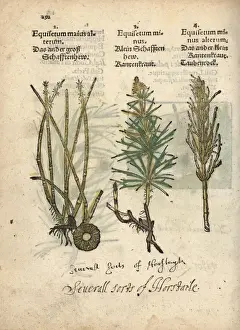 2.
Equisetum maius al
terum.
Das ander groß
Schafftenhew.
3.
Equisetum mi
nus.
Klein Schafften
hew.
Kannenkraut.
4.
Equisetum mi
nus alterum.
Das ander klein
Kannenkraut.
Severall sorts of Horstayle
Severall sorts of Horstaile.